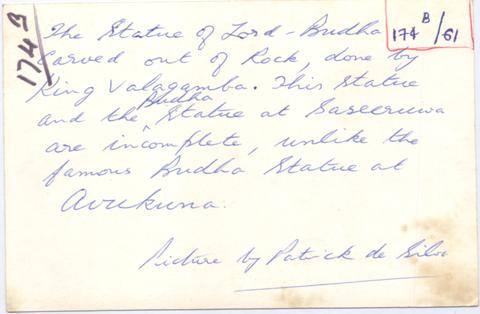 174 B
174 B/61
The Statue of Lord - Budha
Carved out of Rock, done by
King Valagamba. This Statue
and the Budha Statue at Saseeruwa
are incomplete, unlike the
famous Budha Statue at
Avukuna.
Picture by Patrick de Silva